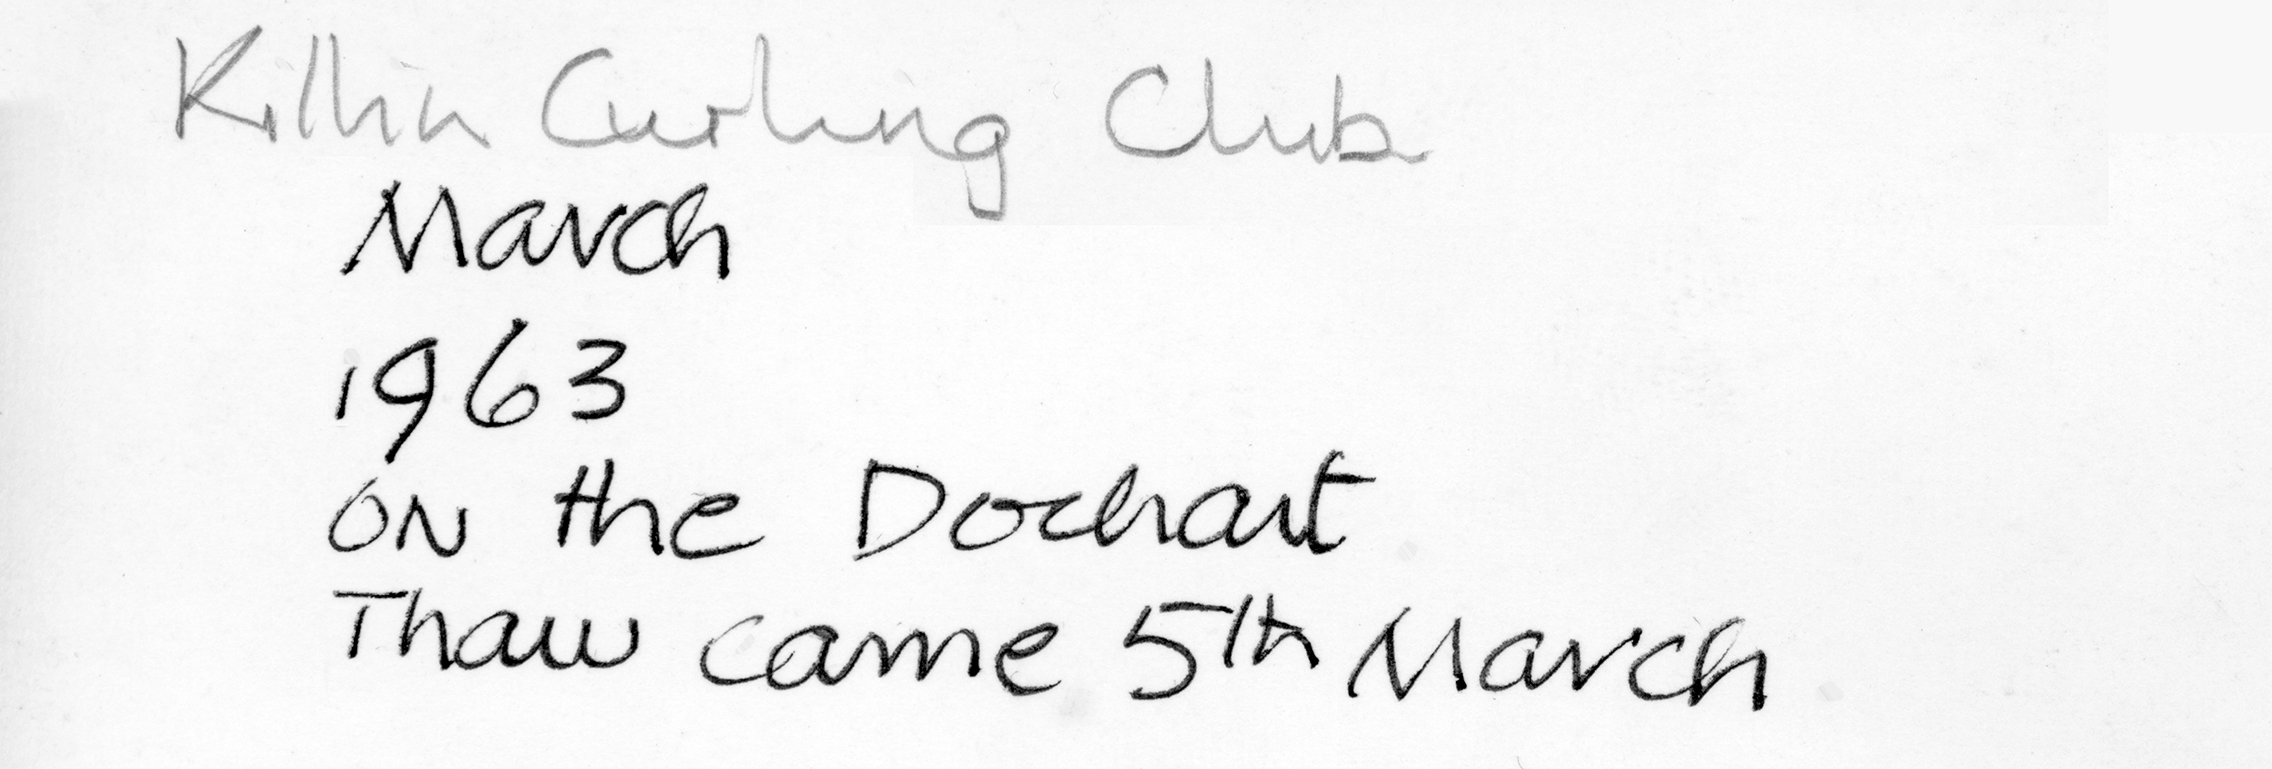 Killin Curling Club
March
1963
on the Dochart
Thaw came 5th March